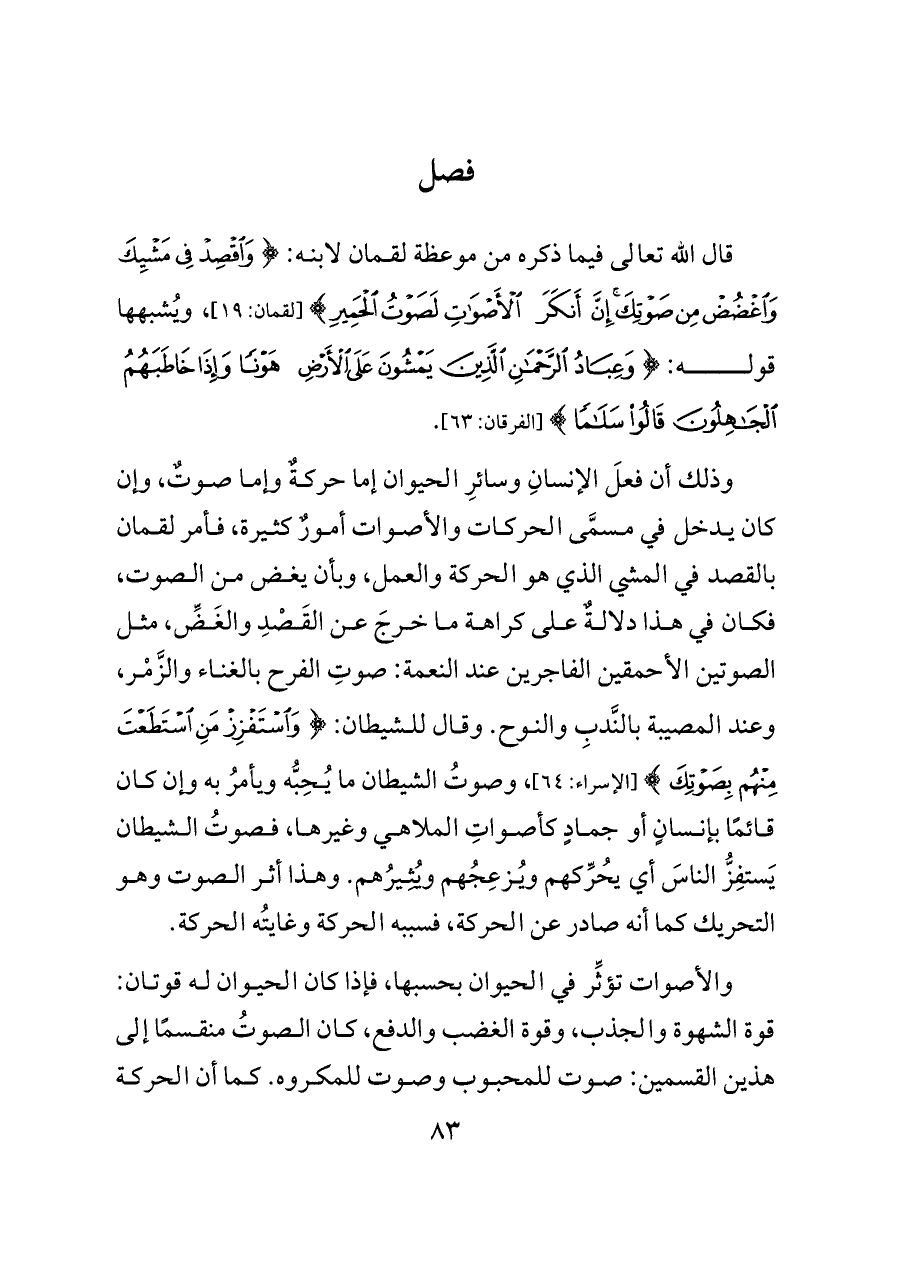 فصل
قال الله تعالى فيما ذكره من موعظة لقمان لابنه: ﴿ وَٱقْصِدْ فِى مَشْيِكَ
وَٱغْضُضْ مِن صَوْتِكَ ۚ إِنَّ أَنكَرَ ٱلْأَصْوَٰتِ لَصَوْتُ ٱلْحَمِيرِ ﴾ [لقمان: ١٩]، ويُشبهها
قولـــــــه: ﴿ وَعِبَادُ ٱلرَّحْمَـٰنِ ٱلَّذِينَ يَمْشُونَ عَلَى ٱلْأَرْضِ هَوْنًا وَإِذَا خَاطَبَهُمُ
ٱلْجَـٰهِلُونَ قَالُوا۟ سَلَـٰمًا ﴾ [الفرقان: ٦٣].
وذلك أن فعلَ الإنسانِ وسائرِ الحيوان إما حركةٌ وإما صوتٌ، وإن
كان يدخل في مسمَّى الحركات والأصوات أمورٌ كثيرة، فأمر لقمان
بالقصد في المشي الذي هو الحركة والعمل، وبأن يغض من الصوت،
فكان في هذا دلالةٌ على كراهة ما خرجَ عن القَصْدِ والغَضِّ، مثل
الصوتين الأحمقين الفاجرين عند النعمة: صوتِ الفرح بالغناء والزَّمْر،
وعند المصيبة بالنَّدبِ والنوح. وقال للشيطان: ﴿ وَٱسْتَفْزِزْ مَنِ ٱسْتَطَعْتَ
مِنْهُم بِصَوْتِكَ ﴾ [الإسراء: ٦٤]، وصوتُ الشيطان ما يُحِبُّه ويأمرُ به وإن كان
قائمًا بإنسانٍ أو جمادٍ كأصواتِ الملاهي وغيرها، فصوتُ الشيطان
يَستفِزُّ الناسَ أي يحُرِّكهم ويُزعِجُهم ويُثِيرُهم. وهذا أثر الصوت وهو
التحريك كما أنه صادر عن الحركة، فسببه الحركة وغايتُه الحركة.
والأصوات تؤثِّر في الحيوان بحسبها، فإذا كان الحيوان له قوتان:
قوة الشهوة والجذب، وقوة الغضب والدفع، كان الصوتُ منقسمًا إلى
هذين القسمين: صوت للمحبوب وصوت للمكروه. كما أن الحركة
٨٣